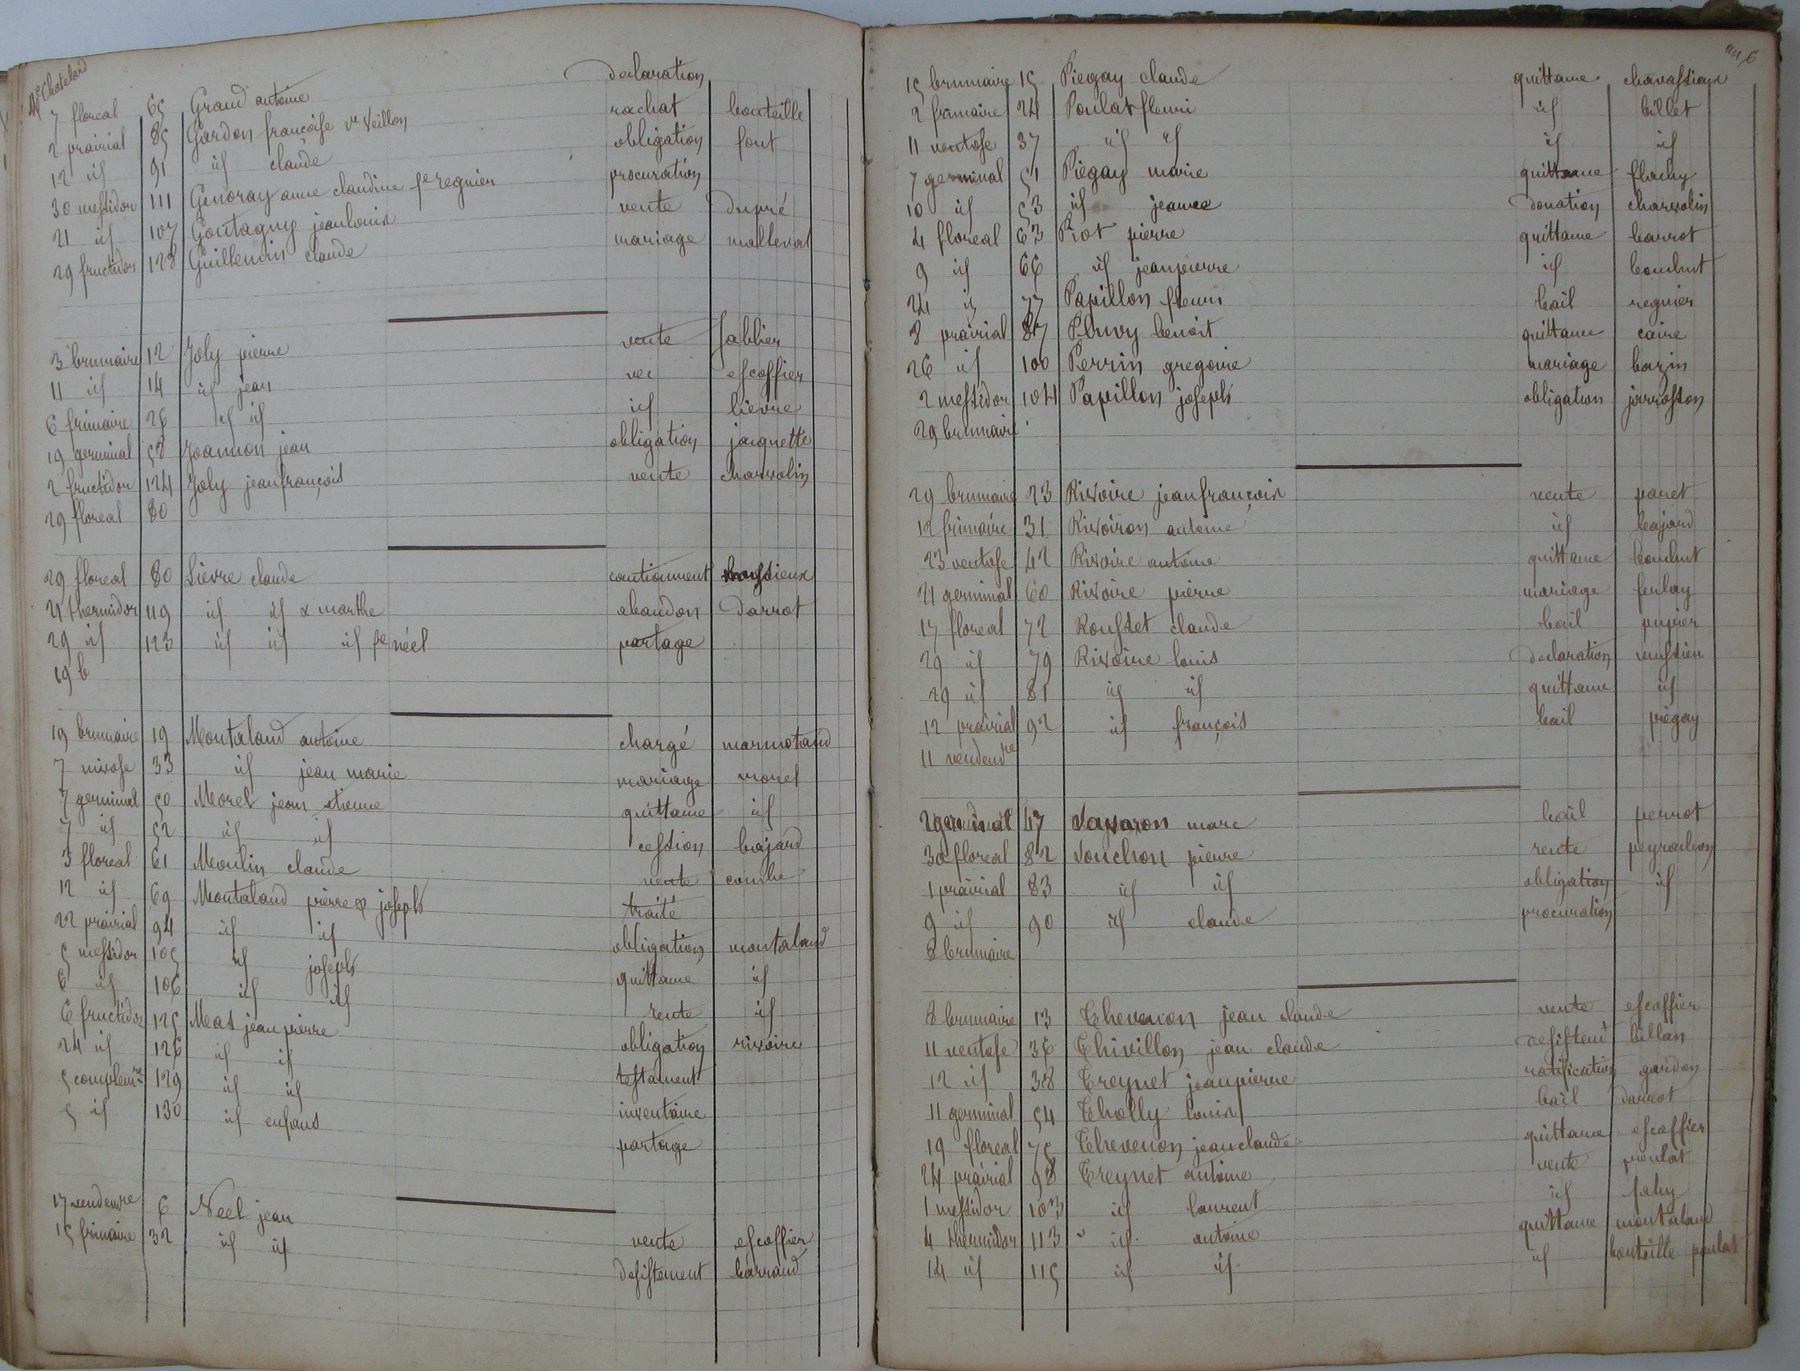 Me Chatelard
7 floreal 65 Grand antoine declaration
2 prairial 85 Gardon françoise ve Veillon rachat bouteille
12 id 91 id claude obligation font
30 messidor 111 Genoray anne claudine fe regnier procuration
21 id 107 Goutagny jean louis vente Dupré
29 fructidor 128 Guillemin claude mariage malleval
3 brumaire 12 Joly pierre vente Jabbier
11 id 14 id jean escoffier
6 frimaire 26 id id id lievre
19 germinal 58 Joannon jean obligation jaquette
2 fructidor 124 Joly jean françois vente charvolin
29 floreal 80
29 floreal 80 Lievre claude cautionnement boussieux
21 thermidor 119 id id & marthe abandon Darrot
29 id 123 id id id fe néel partage
19 b
19 brumaire 19 Montaland antoine chargé marmotand
7 nivose 33 id jean marie mariage morel
7 germinal 50 Morel jean etienne quittance id
7 id 52 id id cession bajard
3 floreal 61 Moulin claude vente combe
12 id 69 Montaland pierre & joseph traité
22 prairial 94 id id obligation montaland
5 messidor 105 id joseph quittance id
6 id 106 id id vente id
6 fructidor 125 Mas jean pierre obligation rivoire
24 id 126 id id testament
5 complemre 129 id id inventaire
5 id 130 id enfans partage
17 vendemre 6 Neel jean vente escoffier
15 frimaire 32 id id desistement barraud
an 6
15 brumaire 15 Piegay claude quittance chavassieux
2 frimaire 24 Poulat fleuri id billet
11 ventose 37 id id id id
7 germinal 51 Piegay marie quittance flachy
10 id 53 id jeanne donation charvolin
4 floreal 63 Piot pierre quittance barrot
9 id 66 id jean pierre id bouchut
24 id 77 Papillon fleuri bail regnier
8 prairial 87 benoit quittance caire
26 id 100 Perrin gregoire mariage bazin
2 messidor 104 Papillon joseph obligation jarrosson
29 brumaire
29 brumaire 23 Rivoire jean françois vente pavet
12 frimaire 31 Rivoiron antoine id bajard
23 ventose 42 Rivoire antoine quittance bouchut
21 germinal 60 Rivoire pierre mariage
17 floreal 72 Rousset claude bail pupier
29 id 79 Rivoire louis declaration mussieu
29 id 81 id id quittance id
12 prairial 92 id françois bail piegay
11 vendemre
2 germinal 47 Savaron marc bail perrot
30 floreal 82 Souchon pierre vente peyrachon
1 prairial 83 id id obligation id
9 id 90 id claude procuration
8 brumaire
8 brumaire 13 Thevenon jean claude vente escoffier
11 ventose 36 Thivillon jean claude desistemt billan
12 id 38 Treynet jean pierre ratification gardon
11 germinal 54 Tholly louis bail darrot
19 floreal 75 Thevenon jean claude quittance escoffier
24 prairial 98 Treynet antoine vente poulat
1 messidor 103 id laurent id
4 thermidor 113 id antoine quittance montaland
14 id 115 id id id bouteille poulat